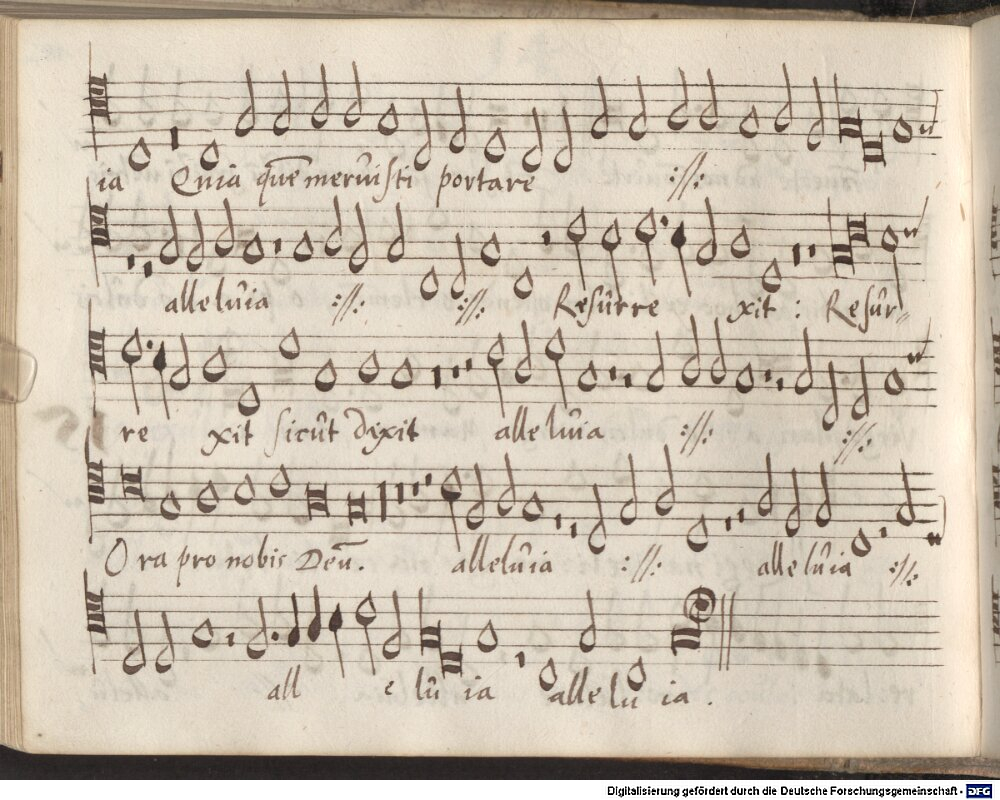 ia Quia quē meruisti portare :||:
alleluia :||: :||: Resurre xit : Resur-
re xit sicut dixit alleluia :||: :||:
Ora pro nobis Deū. alleluia :||: alleluia :||:
all e lu ia alleluia.
Digitalisierung gefördert durch die Deutsche Forschungsgemeinschaft - DFG